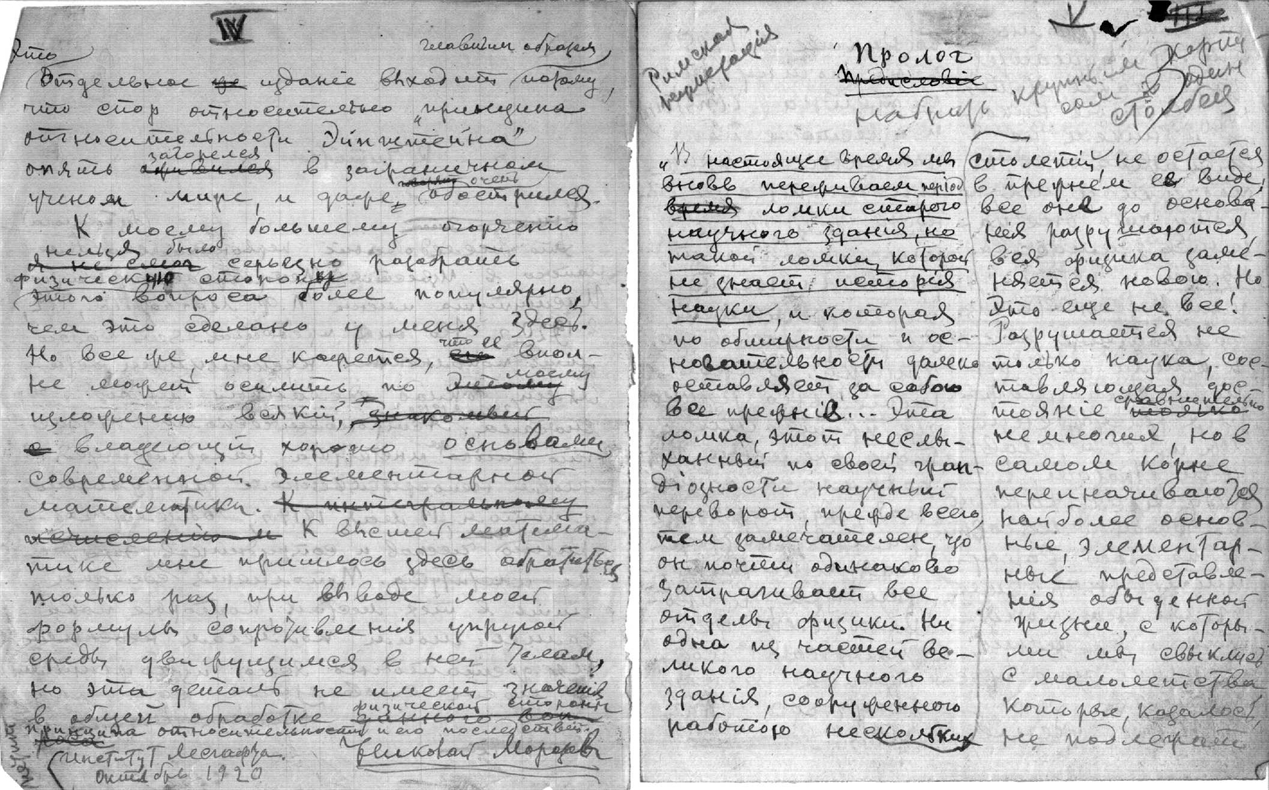 IV
Это
главным образом
Отдельное изданіе выходит потому,
что спор относительно „принципа
относительности Эйнштейна"
загорелся
опять оживился в заграничном
очень
ученом мире, и даже обострился.
К моему большему огорчению
нельзя было
я не смог серьезно разобрать
физическую сторону
этого вопроса более популярно,
чем это сделано у меня здесь.
что ее
Но все же, мне кажется, его впол-
моему
не может осилить по этому
изложению всякий, знакомый
с владеющий хорошо основами
современной элементарной
математики. К интегральному
исчислению и К высшей матема-
тике мне пришлось здесь обратиться
только раз, при выводе моей
формулы сопротивленія упругой
среды движущимся в ней телам,
но эта деталь не имеет значенія
физической стороны
в общей обработке данного воп-
принципа относительности и его последствий.
роса
Институт Лесгафта.
Николай Морозов
Октябрь 1920
V
III
Римская
нумерація
Пролог
Предисловіе
набрать крупным
в один
столбец
„В настоящее время мы
вновь переживаем період
время ломки старого
научного здания, но
такой ломки, которой
не знает исторія
науки, и которая
по обширности и ос-
новательности далеко
оставляет за собою
все прежнія... Эта
ломка, этот неслы-
ханный по своей гран-
діозности научный
переворот, прежде всего,
тем замечателен, что
он почти одинаково
затрагивает все
отделы физики. Ни
одна из частей ве-
ликого научного
зданія, сооруженного
работою нескольких
столетій, не остается
в прежнем ея виде,
все оне до основа-
нія разрушаются,
вся физика заме-
няется новою. Но
Это еще не все!
Разрушается не
только наука, сос-
тавляющая дос-
сравнительно
тояніе только
немногих, но в
самом корне
переиначиваются
наиболее основ-
ные, элементар-
ные представле-
нія обыденной
жизни, с которы-
ми мы свыклись
с малолетства,
которые, казалось,
не подлежат